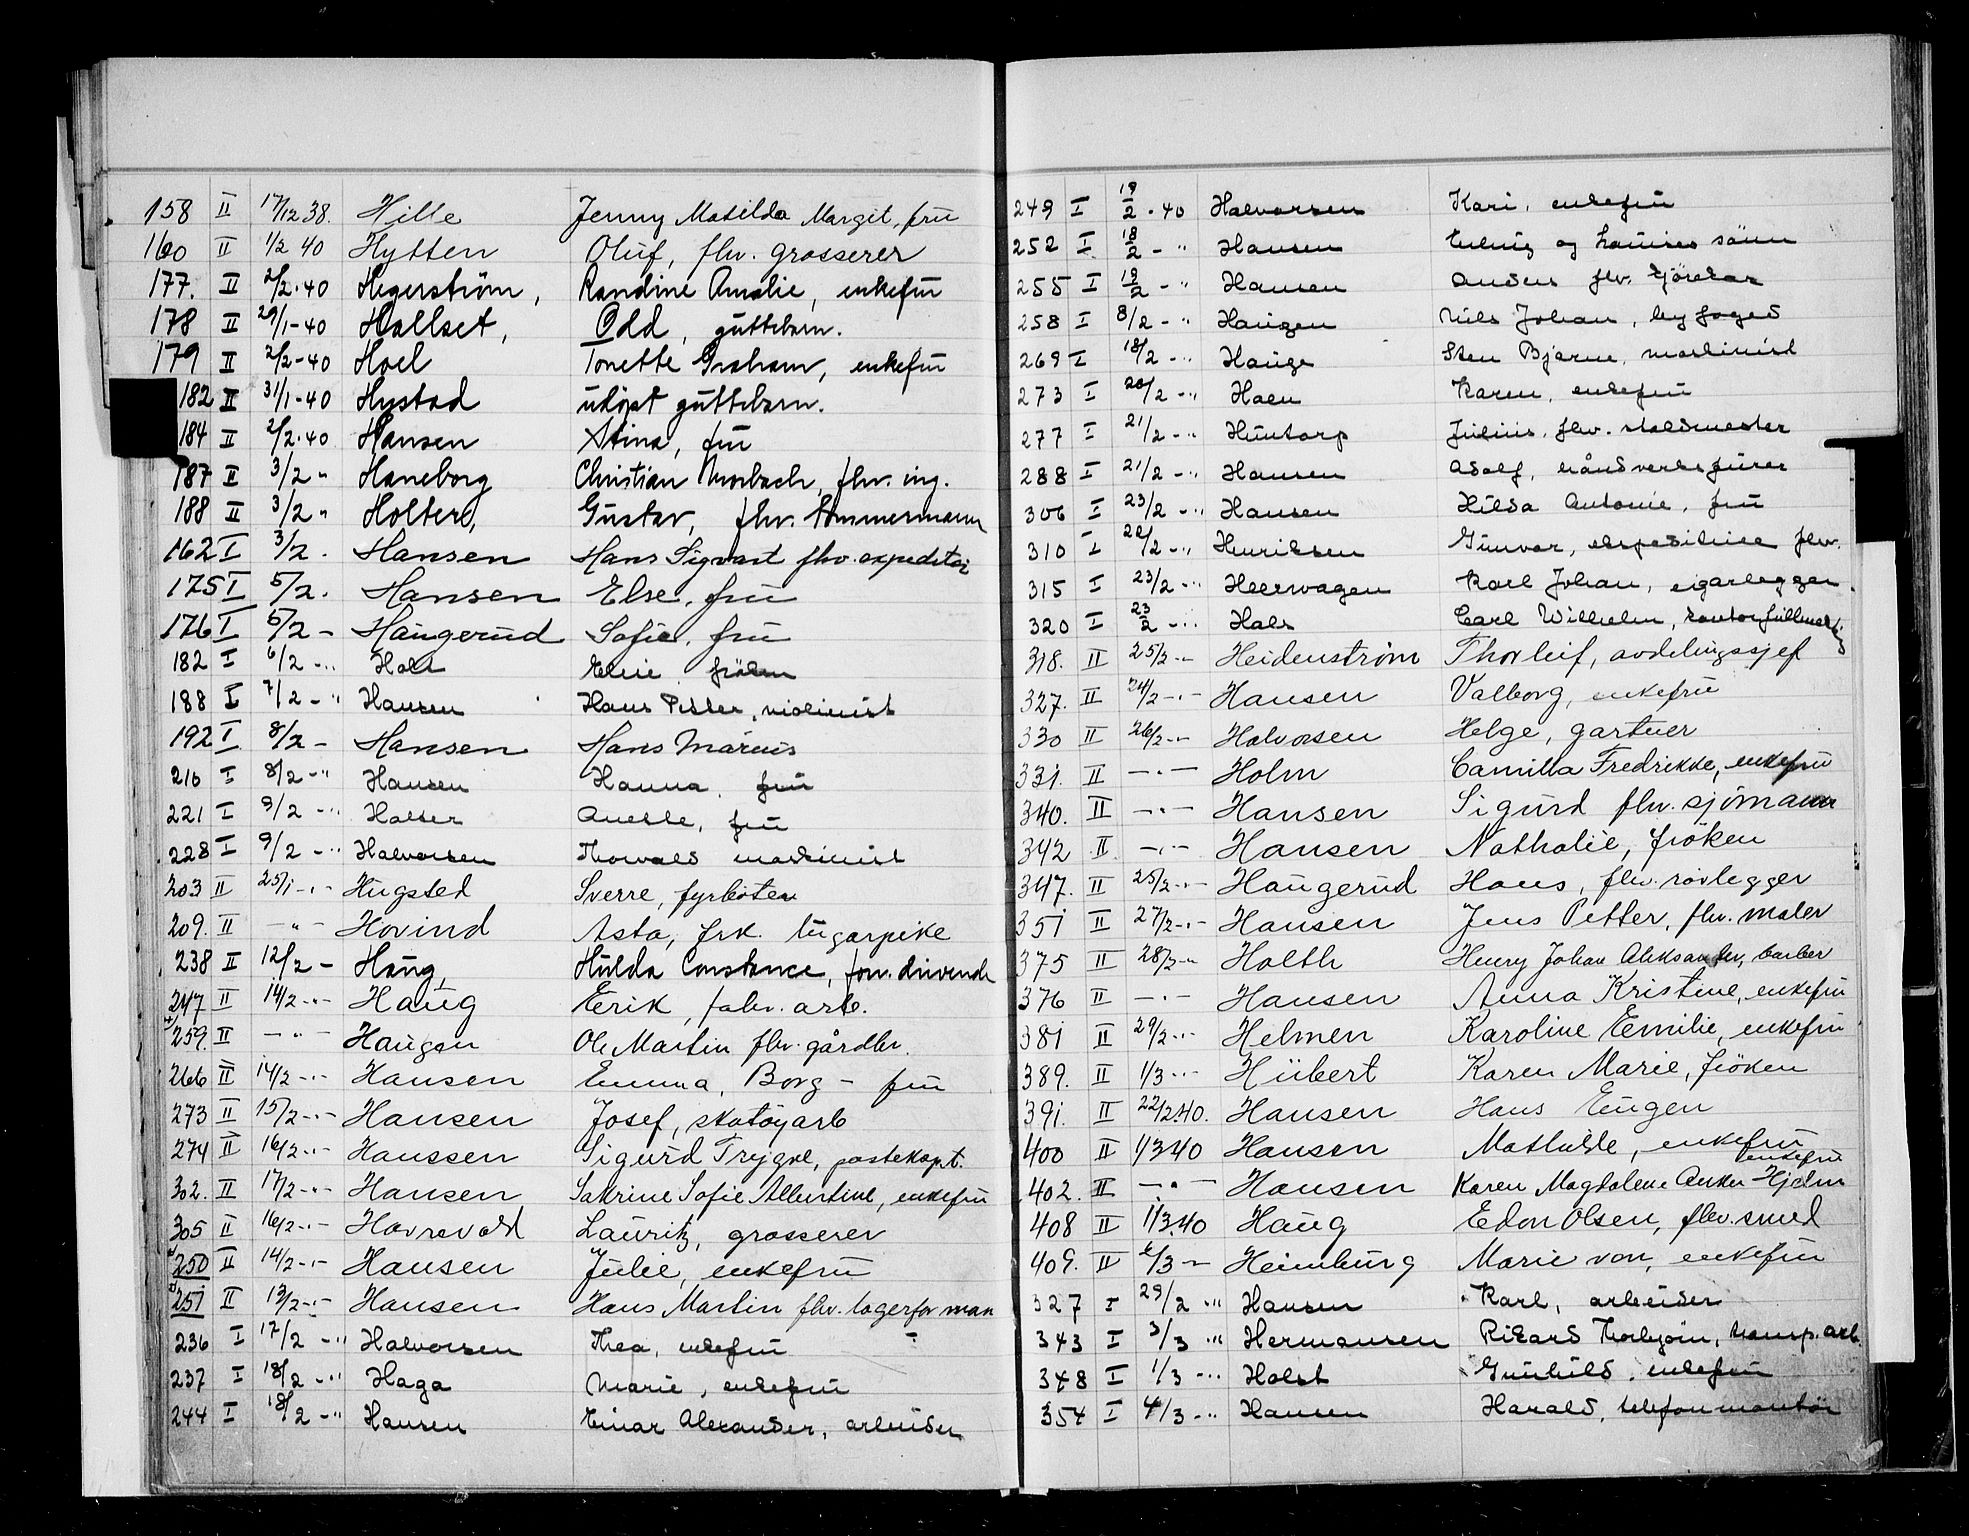 158 II 17/12 38. Hille Jenny Matilda Margit, frü
160 II 1/2 40 Hytten Oluf, fhv. grosserer
177. II 2/2.40 Hegerström, Randine Amalie, enkefrü
178 II 29/1-40 Hallset, Odd, güttebarn.
179 II 2/2-40 Hoel Tonette Graham, enkefrü
182 II 31/1-40 Hystad udöpt güttebarn.
184 II 2/2.40 Hansen Stina, frü
187 II 3/2 " Haneborg Christian Morbach, fhv. ing.
188 II 3/2 " Holter, Gustav, fhv. tömmermann
162 I 3/2. Hansen Hans Sigvart fhv. expeditör
175 I 5/2. Hansen Else, frü
176 I 5/2 - Haugerud Sofie, frü
182 I 6/2 - " Holt Elise fröken
188 I 7/2 - " Hansen Hans Petter, violinist
192 I 8/2 - Hansen Hans Marius
216 I 8/2 - " Hansen Hanna, frü
221 I 9/2 - " Holter Anette, frü
228 I 9/2 - " Halvorsen Thorvald maskinist
203 II 25/1 - " - Hügsted Sverre, fyrböter
209. II - " - Hovind Asta, frk. lügarpike
238 II 12/2 - Haug, Hulda Constance, forr. drivende
247 II 14/2 - " - Haug Erik, fabr. arb.
259. II - " - Haugen Ole Martin fhv. gårdbr.
266 II 14/2 - " - Hansen Emma, Borg - frü
273 II 15/2 - " - Hansen Josef, skotöyarb
274 II 16/2 - " - Hanssen Sigurd Trygve, postekspt.
302. II 17/2 - " - Hansen Sakrine Sofie Albertine, enkefrü
305 II 16/2 - " - Havrevold Lauritz, grosserer
250 II 14/2 - " - Hansen Julie, enkefrü
251 II 13/2 - " - Hansen Hans Martin fhv. lagerforman
236 I 17/2 - " Halvorsen Thea, enkefrü
237 I 18/2 - " Haga Marie, enkefrü
244 I 18/2 - " Hansen Einar Alexander, arbeider
249 I 19/2 - 40 Halvorsen Kari, enkefrü
252 I 18/2 - " Hansen Erling og Louises sönn
255 I 19/2 - " Hansen Anders fhv. kjörekar
258 I 8/2 - " Haugen Nils Johan, by foged
269 I 18/2 - " Hauge Sten Bjarne, maskinist
273 I 20/2 - " Haen Karen, enkefrü
277 I 21/2 - " Huntorp Julius, fhv. staldmester
288 I 21/2 - " Hansen Adolf, håndverksfürer
306 I 23/2 - " Hansen Hilda Antonie, frü
310 I 22/2 - " Henriksen Gunvor, ekspeditrise fhv.
315 I 23/2 - " Heerwagen Karl Johan, sigarlegger
320 I 23/2 - " Hals Carl Wilhelm, kontorfullmektig
318. II 25/2 - " Heidenström Thorleif, avdelingssjef
327. II 24/2 - " - Hansen Valborg, enkefrü
330 II 26/2 - " - Halvorsen Helge, gartner
331. II - " - Holm Camilla Fredrikke, enkefrü
340. II - " - Hansen Sigurd fhv. sjömann
342 II - " - Hansen Nathalie, fröken
347. II 25/2 - " - Haugerud Hans, fhv. rörlegger
351 II 27/2 - " - Hansen Jens Petter, fhv. maler
375 II 28/2 - " Holth Henry Johan Aleksander, barber
376 II - " - Hansen Anna Kristine, enkefrü
381 II 29/2 - " Helmen Karoline Emilie, enkefrü
389. II 1/3 - " - Hübert Karen Marie, fröken
391. II 22/2 40. Hansen Hans Eugen
400 II 1/3 40 Hansen Mathilde, enkefrü
402. II - " - Hansen Karen Magdalene Anker Hjelm enkefrü
408 II 1/3.40 Haug Edon Olsen, fhv. smed
409. II 2/3 - Heimburg Marie von, enkefrü
327 I 29/2 " Hansen Karl, arbeider
343 I 3/3 " Hermansen Rikard Thorbjörn, transp. arb.
348 I 1/3 - " Holst Gunhild, enkefrü
354 I 4/3 - " Hansen Harald, telefonmontör